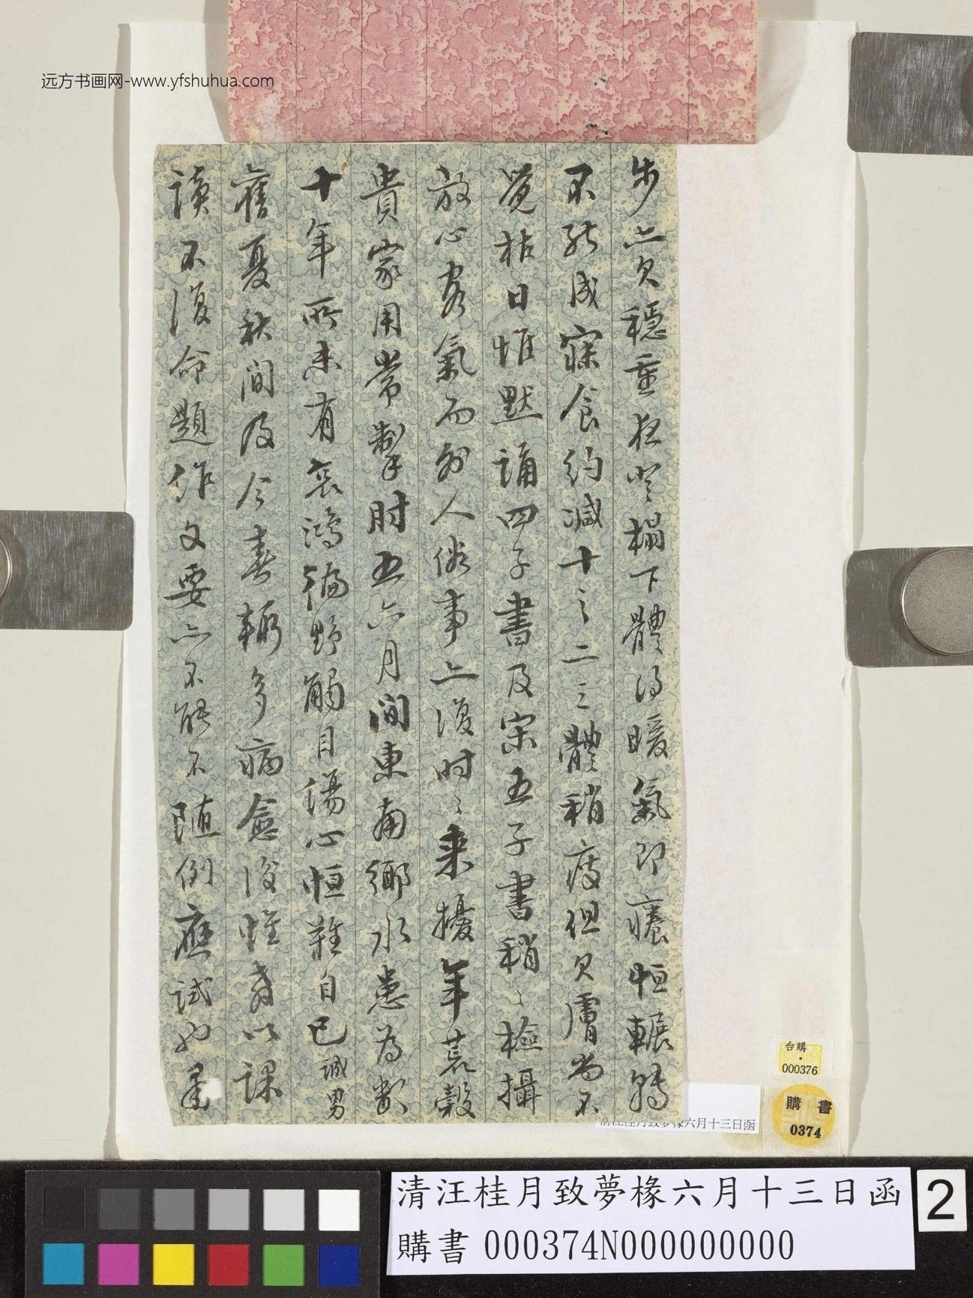 远方书画网-www.yfshuhua.com
步亦欠穩重夜登榻下體得暖氣即癢恒輾轉
不能成寐食約減十之二三體稍瘦但欠膚尚不
覺枯日惟默誦四子書及宋五子書稍稍檢攝
放心客氣而外人俗事亦復時時來擾年荒穀
貴家用常掣肘五六月間東南鄉水患為數
十年所未有哀鴻徧野觸目傷心恒難自已城男
舊夏秋間及今春輒多病愈後惟君以課
讀不復命題作文要亦不能不隨例應試也
台購
000376
購書
0374
清汪桂月致夢椽六月十三日函
清汪桂月致夢椽六月十三日函
購書 000374N000000000
2